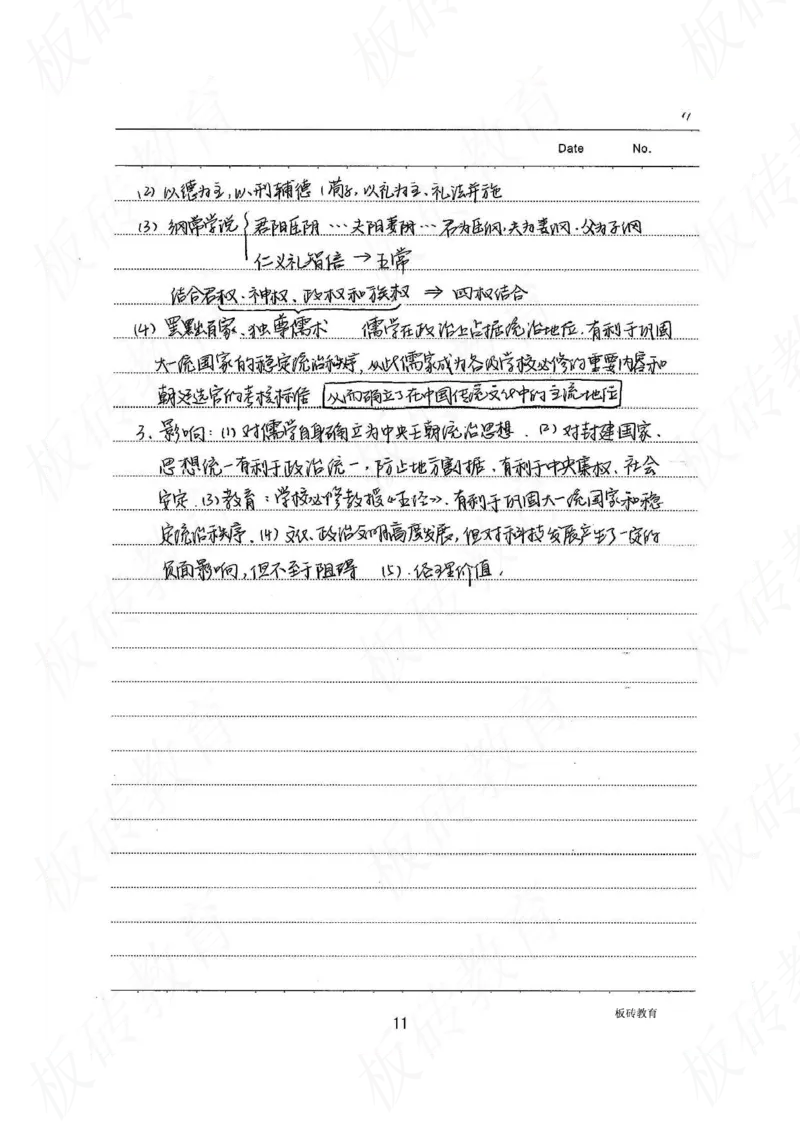 11
Date No.
(2) 以德为主,以刑辅德 (荀子,以礼为主、礼法并施
(3) 纲常学说 君阳臣阴…夫阳妻阴…君为臣纲,夫为妻纲,父为子纲
仁义礼智信 → 五常
结合君权、神权、政权和族权 ⇒ 四权结合
(4) 罢黜百家、独尊儒术 儒学在政治上占据统治地位,有利于巩固
大一统国家的稳定统治秩序,从此儒家成为各级学校必修的重要内容和
朝廷选官的考核标准 从而确立了在中国传统文化中的主流地位
3、影响:(1) 对儒学自身确立为中央王朝统治思想. (2) 对封建国家、
思想统一有利于政治统一,防止地方割据、有利于中央集权、社会
安定 (3) 教育:学校必修教授《五经》、有利于巩固大一统国家和稳
定统治秩序、(4) 文化、政治文明高度发展,但对科技发展产生了一定的
负面影响,但不至于阻碍 (5).伦理价值.
11
板砖教育